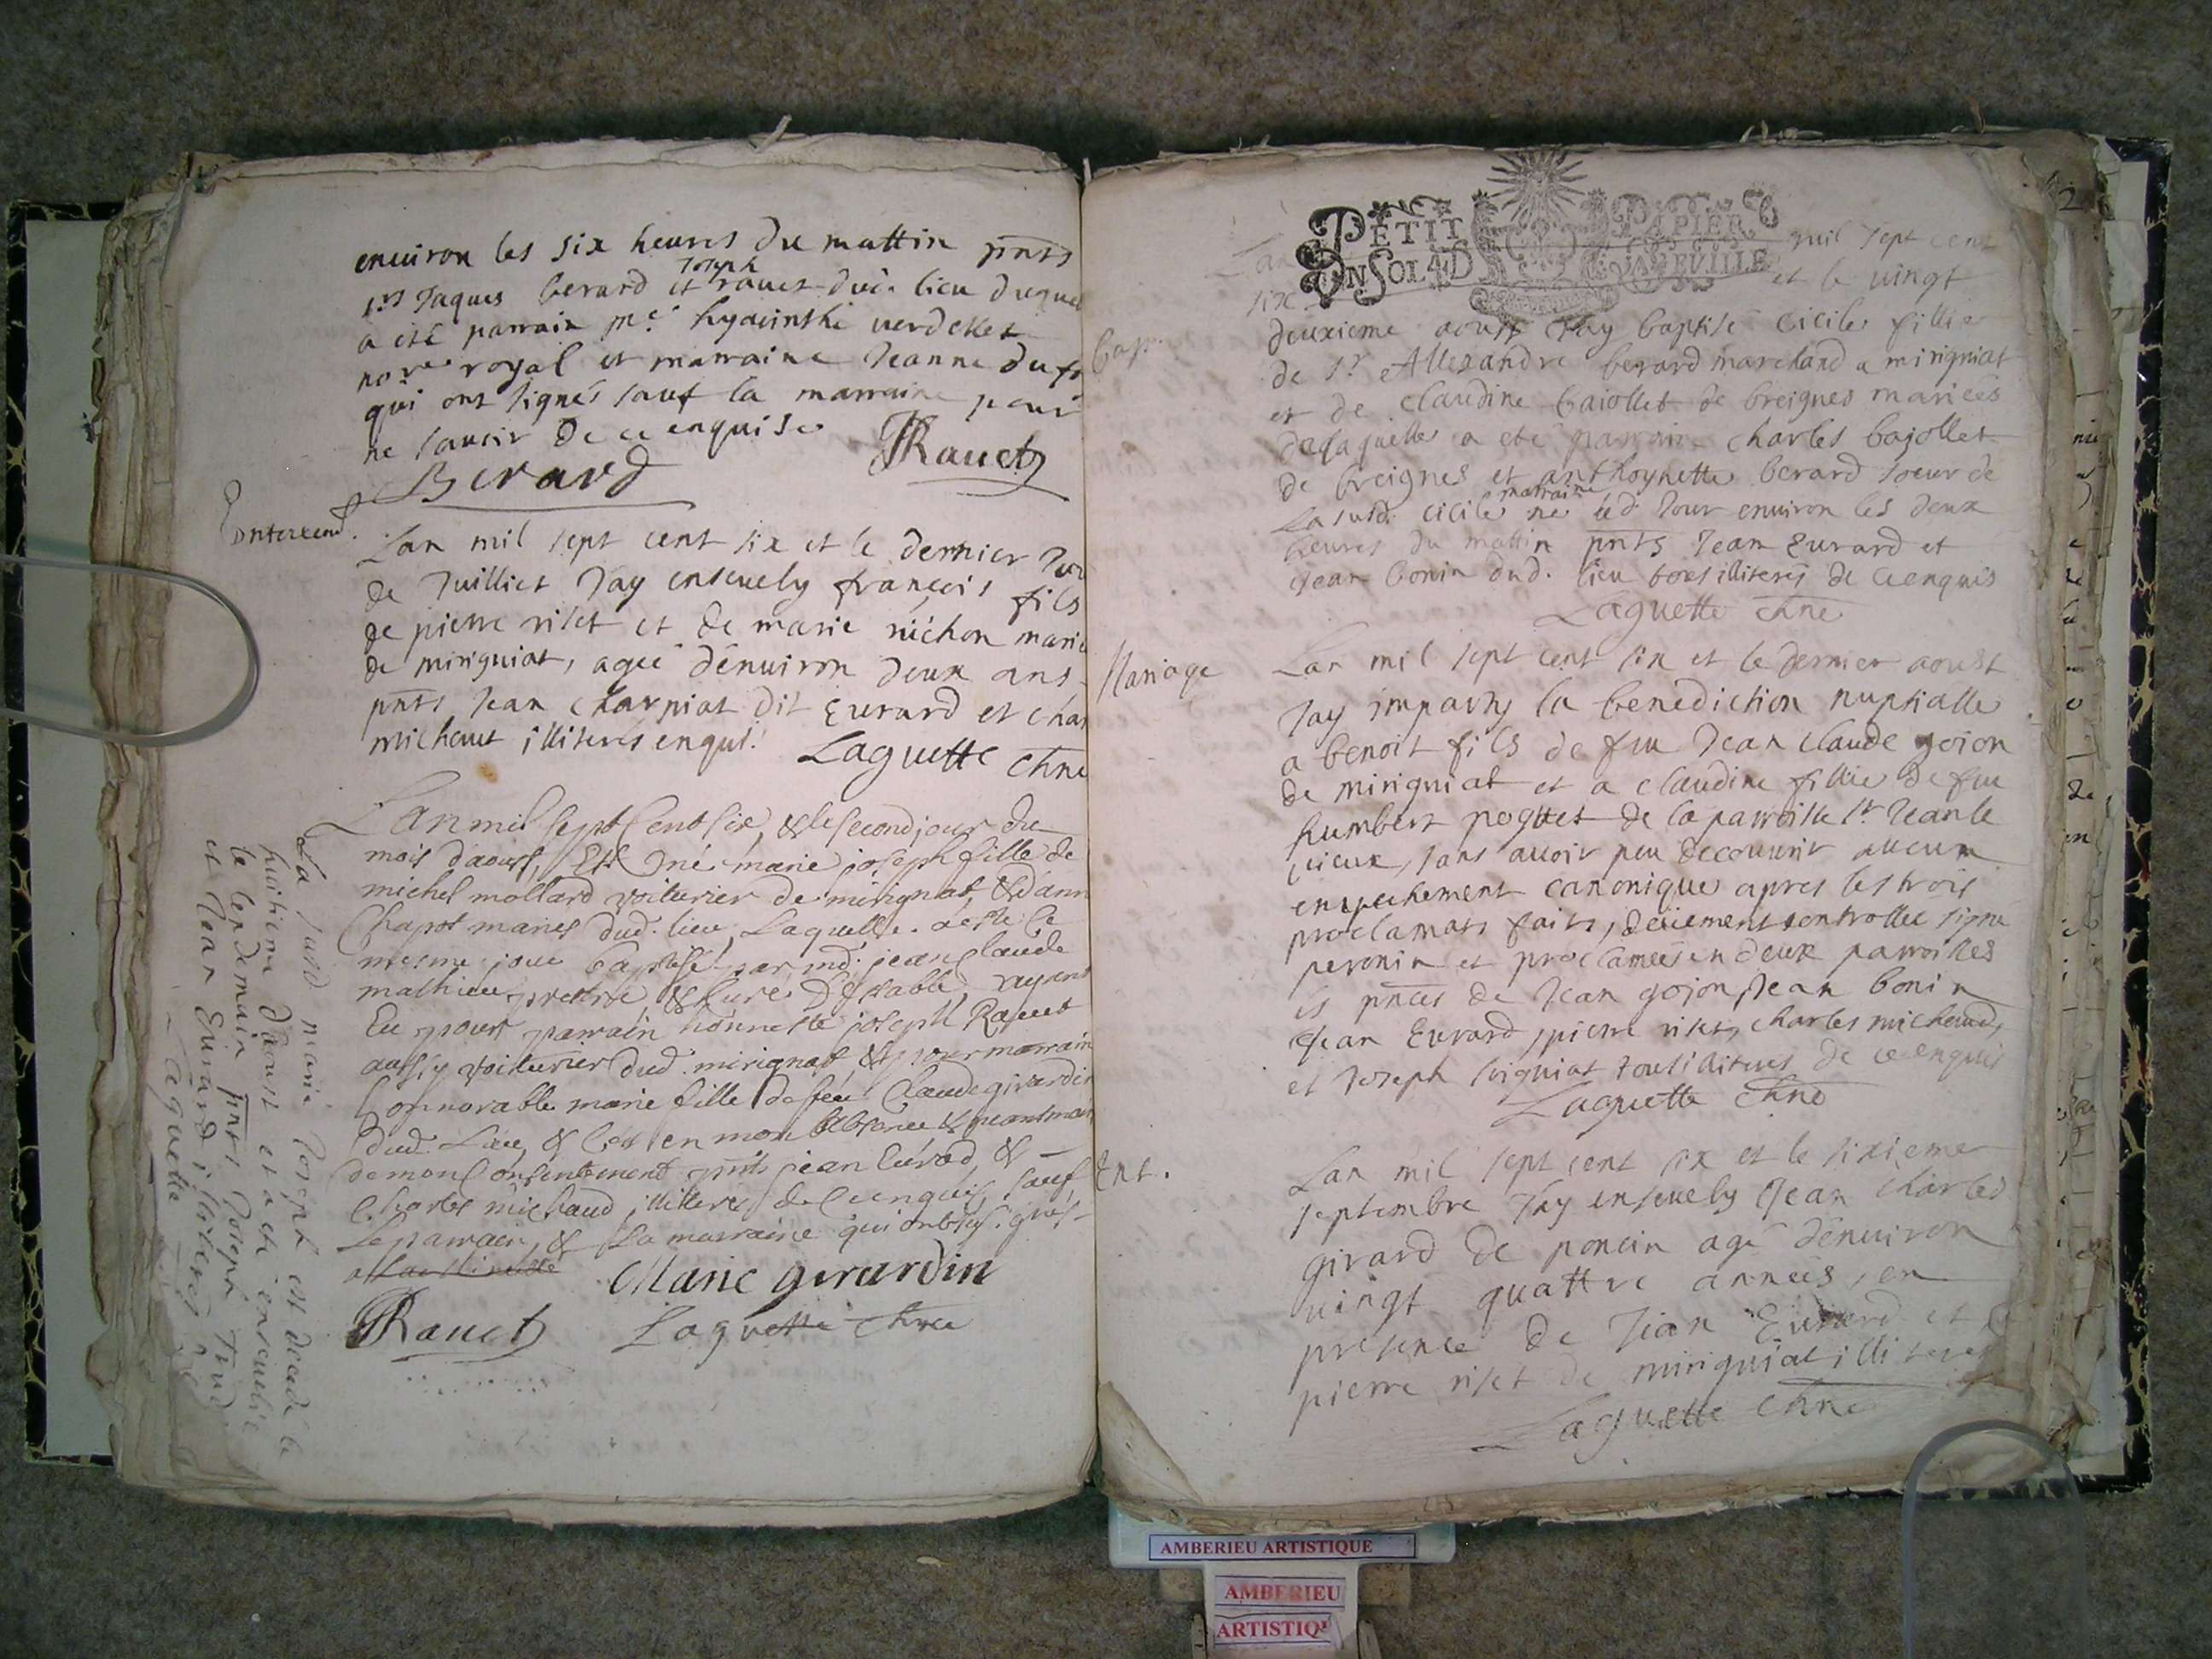 environ les six heures du mattin pnts
srs Jaques berard et Joseph rauet dud. lieu duquel
a eté parrain me. hyacinthe verdellet
nore. royal et marraine Jeanne dufr
qui ont signés sauf la marraine pour
ne scavoir de ce enquise
Berard JRauet
Enterrem.
Lan mil sept cent six et le dernier Jour
de Juilliet Jay enseuely françois fils
de pierre riset et de marie michon marie
de mirigniat, agée d'enuiron deux ans
pnts Jean charpiat dit Eurard et char
michaut illiterés enqui.
Laguette Chne
Lan mil sept Cent six, & le second jour du
mois d'aoust, Est né marie joseph fille de
michel mollard voiturier de mirignat, & d'ann
Chapot mariés dud. lieu, Laquelle a esté le
mesme jour baptisé par md. jean claude
mathieu prestre & Curé d'estable, ayant
Eu pour parrain honneste joseph Rauet
aussy voiturier dud. mirignat, & pour marrain
honnorable marie fille de feu Claude girardin
dud. Lieu, & C'est en mon absence & neantmoin
de mon Consentement pnts jean Evrad, &
Charles michaud, illiterés de Ce enquis, sauf
Le parrain, & La marraine qui ont sousignés
Marie girardin
JRauet Laguette chne
La susd marie Joseph est decedé le
huitieme d'aoust et a eté enseuelie
le lendemain pnts Joseph
et Jean Eurard illiterés
Laguette
PETIT PAPIER
UN SOL 4 D LA FEUILLE
Lan mil sept cent
six et le vingt
Bap.
deuxieme aoust Jay baptisé Cicile fillie
de sr. Allexandre berard marchand a mirigniat
et de Claudine baiollet de breignes mariées
de laquelle a eté parrain Charles bajollet
de breignes et anthoynette berard soeur de
La susd. Cicile marraine né ud. Jour environ les deux
heures du mattin pnts Jean Eurard et
Jean bonin dud. lieu tous illiterés de ce enquis
Laguette Chne
Mariage
Lan mil sept cent six et le dernier aoust
Jay imparty la benediction nuptialle
a benoit fils de feu Jean Claude gojon
de mirigniat et a Claudine fillie de feu
humbert poguet de la parroisse st. Jean le
uieux, sans auoir peu decouurir aucun
enpechement canonique apres les trois
proclamats faits, deüement controllée signe
peronin et proclamées en deux parroisses
és pnces de Jean gojon, Jean bonin
Jean Eurard, pierre riset, charles michaud,
et Joseph tous illiterés de ce enquis
Laguette Chne
Ent.
Lan mil sept cent six et le sixieme
septembre Jay enseuely Jean Charles
girard de poncin agé d'enuiron
uingt quattre années, en
presence de Jean Eurard et
pierre riset de mirigniat illiteres
Laguette Chne
AMBERIEU ARTISTIQUE
AMBERIEU
ARTISTIQU